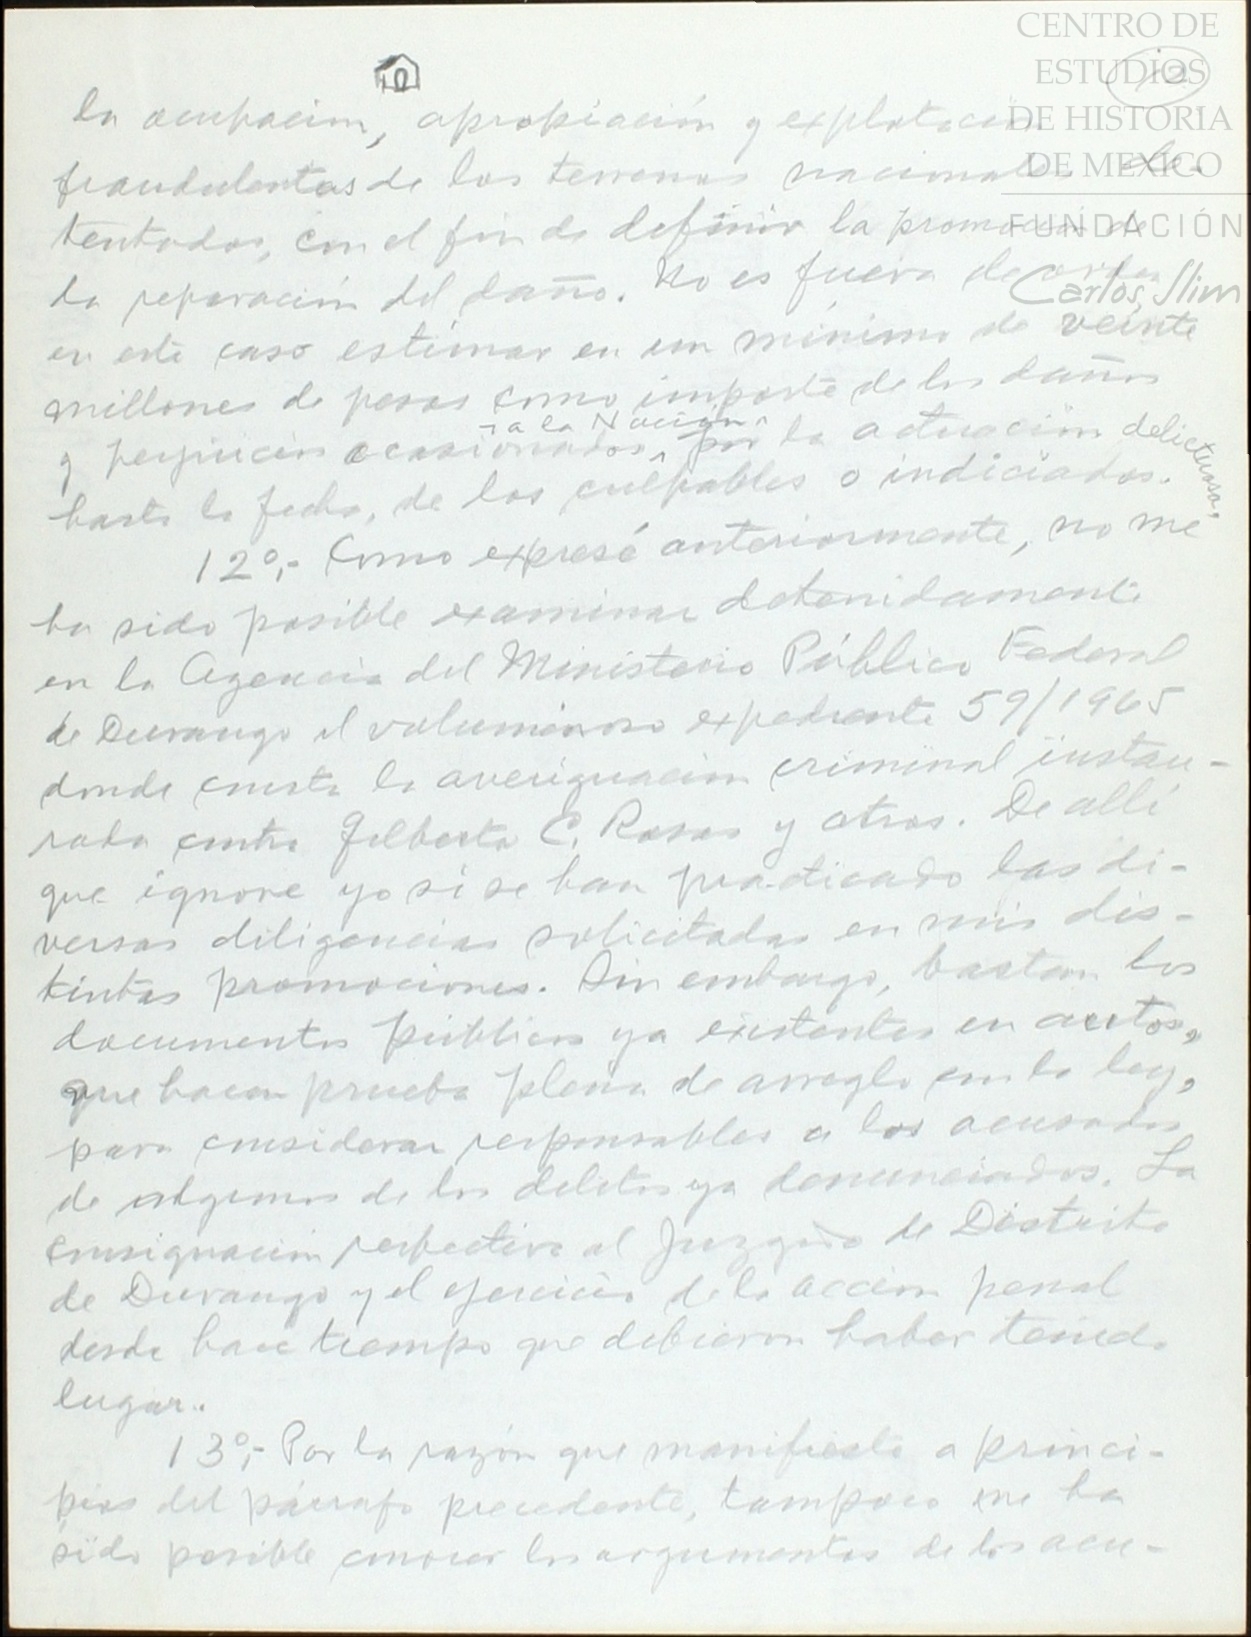 CENTRO DE
ESTUDIOS
DE HISTORIA
DE MEXICO
FUNDACIÓN
Carlos Slim
10
12
la ocupacion, apropiación y explotación
fraudulentas de los terrenos nacionales de-
tentados, con el fin de definir la promoción de
la reparación del daño. No es fuera de orden
en este caso estimar en un mínimo de veinte
millones de pesos como importe de los daños
y perjuicios ocasionados a la Nación por la actuación delictuosa,
hasta la fecha, de los culpables o indiciados.
12º,- Como expresé anteriormente, no me
ha sido posible examinar detenidamente
en la Agencia del Ministerio Público Federal
de Durango el voluminoso expediente 59/1965
donde consta la averiguación criminal instau-
rada contra Gilberto C. Rosas y otros. De allí
que ignore yo si se han practicado las di-
versas diligencias solicitadas en mis dis-
tintas promociones. Sin embargo, bastan los
documentos públicos ya existentes en autos,
que hacen prueba plena de arreglo con la ley,
para considerar responsables a los acusados
de algunos de los delitos ya denunciados. La
consignación respectiva al Juzgado de Distrito
de Durango y el ejercicio de la acción penal
desde hace tiempo que debieron haber tenido
lugar.
13º,- Por la razón que manifiesto a princi-
pios del párrafo precedente, tampoco me ha
sido posible conocer los argumentos de los acu-